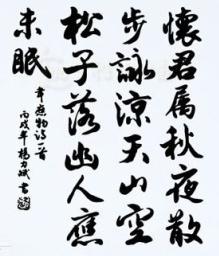 懷君属秋夜散
步詠凉天山空
松子落幽人應
未眠
韋應物诗一首
丙戌年楊力斌書